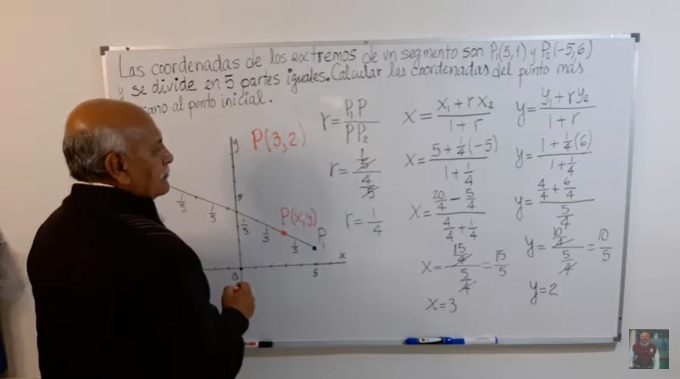 Las coordenadas de los extremos de un segmento son P₁(5,1) y P₂(-5,6)
y se divide en 5 partes iguales. Calcular las coordenadas del punto más
al punto inicial.
P(3,2)
y
1/5
1/5
1/5
1/5
1/5
P(x,y)
P₁
x
0
5
r = P₁P/PP₂
r = (1/5)/(4/5)
r = 1/4
x = (x₁+rx₂)/(1+r)
x = (5+1/4(-5))/(1+1/4)
x = (20/4-5/4)/(4/4+1/4)
x = (15/4)/(5/4) = 15/5
x=3
y = (y₁+ry₂)/(1+r)
y = (1+1/4(6))/(1+1/4)
y = (4/4+6/4)/(5/4)
y = (10/4)/(5/4) = 10/5
y=2